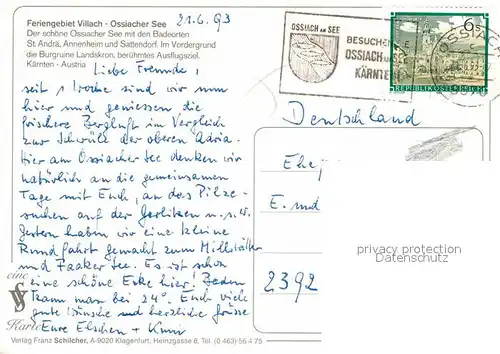 Feriengebiet Villach - Ossiacher See
Der schöne Ossiacher See mit den Badeorten
St. Andrä, Annenheim und Sattendorf. Im Vordergrund
die Burgruine Landskron, berühmtes Ausflugsziel.
Kärnten - Austria
21.6.93
OSSIACH AM SEE
BESUCHEN
OSSIACH
KÄRNTEN
6 S
REPUBLIK ÖSTERREICH
OSSIACH
Liebe Freunde,
seit 1 Woche sind wir nun
hier und geniessen die
frischere Bergluft im Vergleich
zur Schwüle der oberen Adria.
Hier am Ossiacher See denken wir
natürlich an die gemeinsamen
Tage mit Euch, an das Pilze-
suchen auf der Gerlitzen u.s.w.
Gestern haben wir eine kleine
Rundfahrt gemacht zum Millstätter
und Faaker See. Es ist schon
eine schöne Ecke hier. Baden
kann man bei 24°. Euch viele
gute Wünsche und herzliche Grüsse
Eure Elschen +
Deutschland
E. und
2392
privacy protection
Datenschutz
eine
Karte
Verlag Franz Schilcher, A-9020 Klagenfurt, Heinzgasse 8, Tel. (0 463) 56 4 75